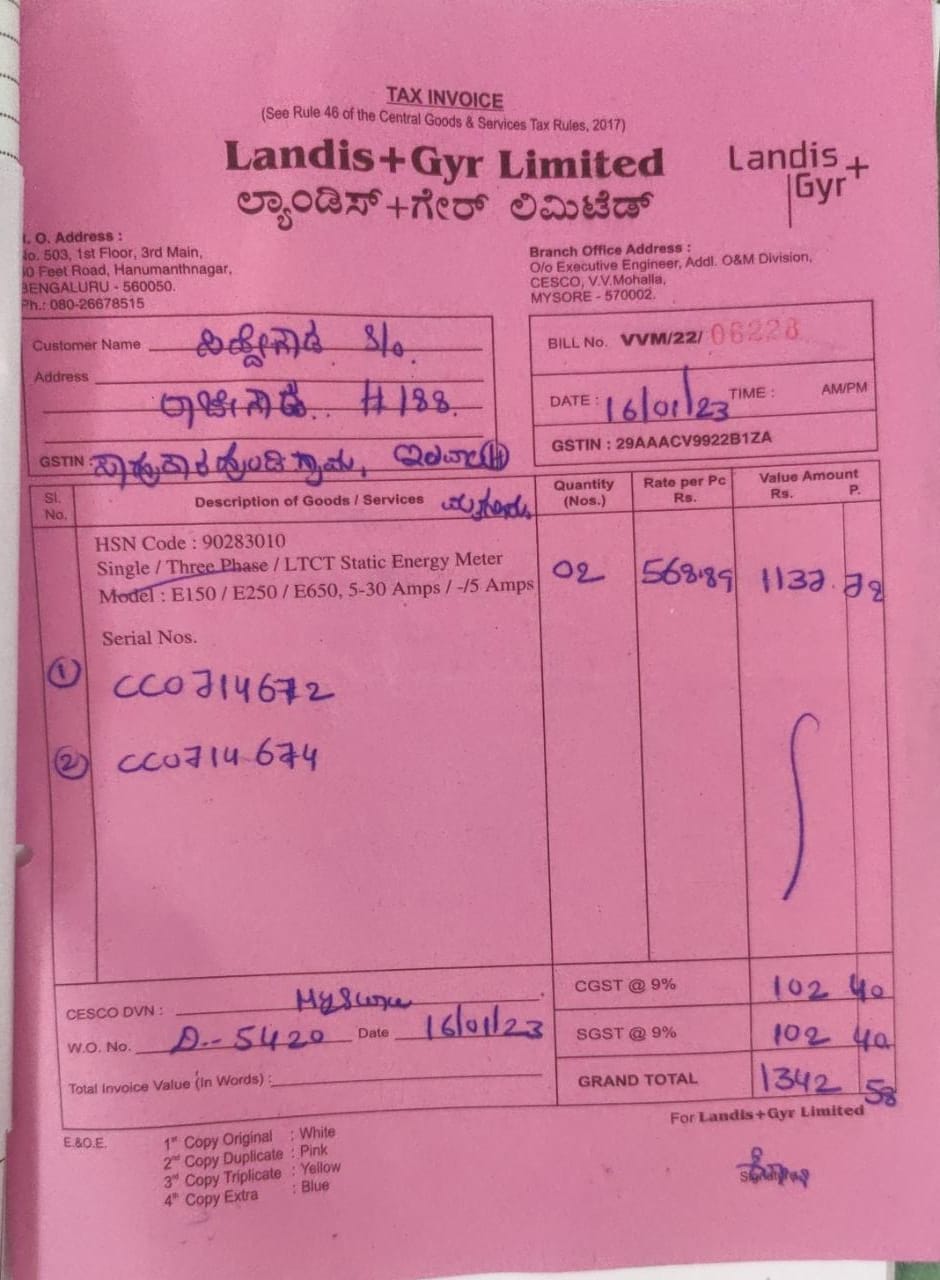 TAX INVOICE
(See Rule 46 of the Central Goods & Services Tax Rules, 2017)
Landis+Gyr Limited
ಲ್ಯಾಂಡಿಸ್+ಗೇರ್ ಲಿಮಿಟೆಡ್
Landis
Gyr+
. O. Address :
No. 503, 1st Floor, 3rd Main,
0 Feet Road, Hanumanthnagar,
BENGALURU - 560050.
Ph.: 080-26678515
Branch Office Address :
O/o Executive Engineer, Addl. O&M Division,
CESCO, V.V.Mohalla,
MYSORE - 570002.
Customer Name S/o.
Address
#188.
GSTIN :
BILL No. VVM/22/ 06228
DATE : 16/01/23 TIME : AM/PM
GSTIN : 29AAACV9922B1ZA
Sl. No. Description of Goods / Services Quantity (Nos.) Rate per Pc Rs. Value Amount Rs. P.
HSN Code : 90283010
Single / Three Phase / LTCT Static Energy Meter 02 568.89 1137.78
Model : E150 / E250 / E650, 5-30 Amps / -/5 Amps
Serial Nos.
1 CC0714672
2 CC0714674
CESCO DVN : Mysore
W.O. No. D.-5420 Date 16/01/23
Total Invoice Value (In Words) :
CGST @ 9% 102 40
SGST @ 9% 102 40
GRAND TOTAL 1342 58
For Landis+Gyr Limited
E.&O.E.
1st Copy Original : White
2nd Copy Duplicate : Pink
3rd Copy Triplicate : Yellow
4th Copy Extra : Blue